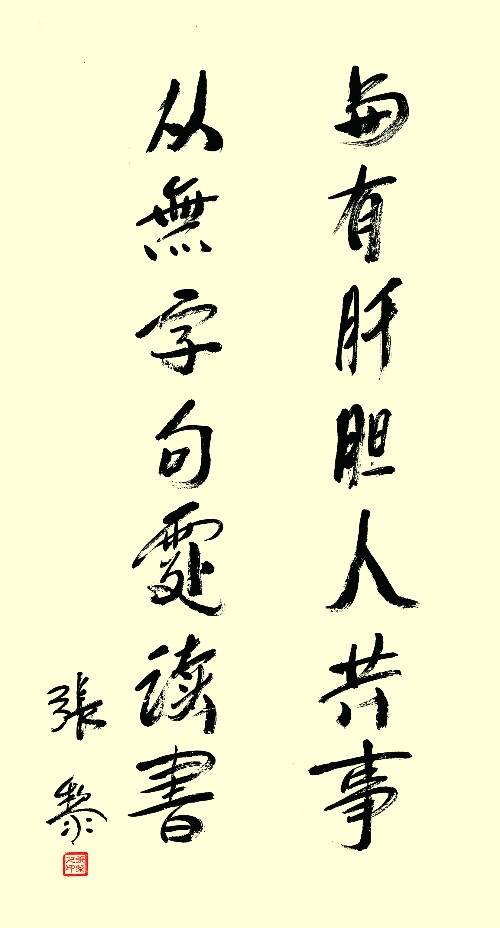 與有肝胆人共事
从無字句處读書
張黎